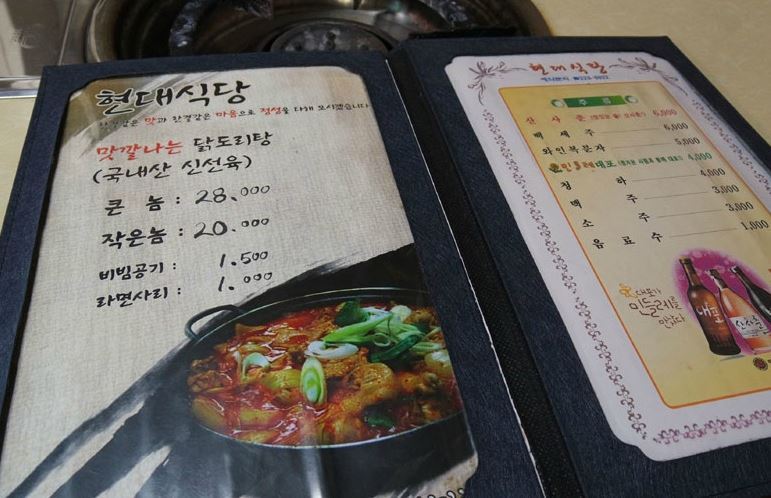 현대식당
한결같은 맛과 한결같은 마음으로 정성을 다해 모시겠습니다
맛깔나는 닭도리탕
(국내산 신선육)
큰 놈 : 28.000
작은놈 : 20.000
비빔공기 : 1.500
라면사리 : 1.000
현대식당
주 류
산 사 춘 6,000
백 세 주 6,000
와인복분자 5,000
민들레대포 4,000
청 하 4,000
맥 주 3,000
소 주 3,000
음 료 수 1,000
대포가
민들레를
만났다
대포
산사춘